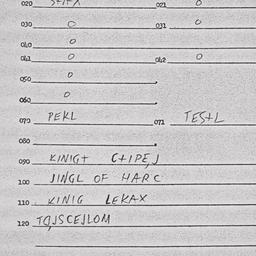 020 021 0
030 0 031 0
040 0
041 0 042 0
050 0
060 0
070 PEKL 071 TESTL
080
090 KINIGT CTIPE,J
100 JINGL OF HARC
110 KINIG LEKAX
120